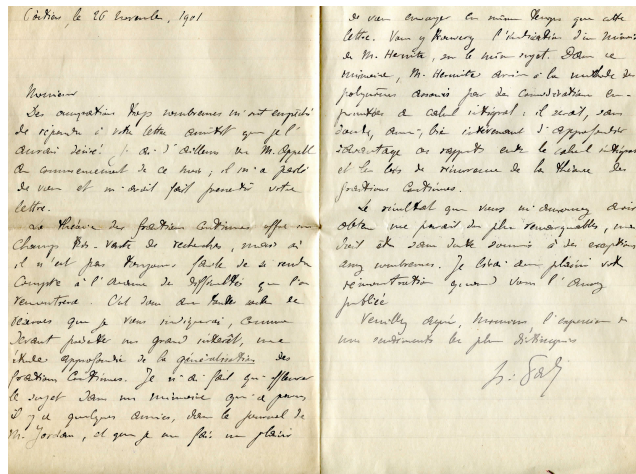 Poitiers, le 26 Novembre, 1901
Monsieur
Des occupations trop nombreuses m'ont empêché
de répondre à votre lettre aussitôt que je l'
aurais désiré. J'ai d'ailleurs vu M. Appell
au commencement de ce mois ; il m'a parlé
de vous et m'avait fait votre
lettre.
La théorie des fractions continues offre un
champ très vaste de recherches, mais où
il n'est pas toujours facile de se rendre
compte à l'avance des difficultés que l'on
rencontrera. C'est donc sous toute
réserve que je vous indiquerai, comme
devant présenter un grand intérêt, une
étude approfondie de la généralisation des
fractions continues. Je n'ai fait qu'effleurer
le sujet dans un mémoire qui a paru
il y a quelques années, dans le journal de
M. Jordan, et que je me fais un plaisir
de vous envoyer en même temps que cette
lettre. Vous y trouverez l'indication d'un mémoire
de M. Hermite, sur le même sujet. Dans ce
mémoire, M. Hermite arrive à la méthode des
polynômes associés par des considérations em-
pruntées au calcul intégral ; il serait, sans
doute, aussi bien intéressant d'approfondir
davantage ces rapports entre le calcul intégral
et les lois de récurrence de la théorie des
fractions continues.
Le résultat que vous m'annoncez avoir
obtenu me paraît des plus remarquables, mais
doit être sans doute soumis à des exceptions
assez nombreuses. Je lirai avec plaisir votre
démonstration quand vous l'aurez
publiée
Veuillez agréer, Monsieur, l'expression de
mes sentiments les plus distingués